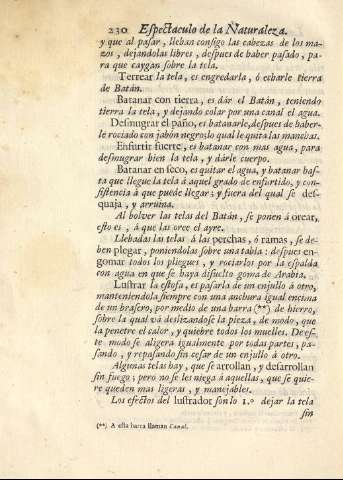 230 Espectaculo de la Naturaleza.
y que al pasar, lleban consigo las cabezas de los ma-
zos, dejandolas libres, despues de haber pasado, pa-
ra que caygan sobre la tela.
Terrear la tela, es engredarla, ó echarle tierra
de Batán.
Batanar con tierra, es dár el Batán, teniendo
tierra la tela, y dejando colar por una canal el agua.
Desmugrar el paño, es batanarle, despues de haber-
le rociado con jabón negro, lo qual le quita las manchas.
Enfurtir fuerte, es batanar con mas agua, para
desmugrar bien la tela, y dárle cuerpo.
Batanar en seco, es quitar el agua, y batanar has-
ta que llegue la tela á aquel grado de enfurtido, y con-
sistencia á que puede llegar; y fuera del qual se des-
quaja, y arruina.
Al bolver las telas del Batán, se ponen á orear,
esto es, á que las oree el ayre.
Llebadas las telas á las perchas, ó ramas, se de-
ben plegar, poniendolas sobre una tabla: despues en-
gomar todos los pliegues, y rociarlos por la espalda
con agua en que se haya disuelto goma de Arabia.
Lustrar la estofa, es pasarla de un enjullo á otro,
manteniendola siempre con una anchura igual encima
de un brasero, por medio de una barra (**) de hierro,
sobre la qual vá deslizandose la pieza, de modo, que
la penetre el calor, y quiebre todos los muelles. De es-
te modo se aligera igualmente por todas partes, pa-
sando, y repasando sin cesar de un enjullo á otro.
Algunas telas hay, que se arrollan, y desarrollan
sin fuego; pero no se les niega á aquellas, que se quie-
re queden mas ligeras, y manejables.
Los efectos del lustrador son lo 1.º dejar la tela
sin
(**) A esta barra llaman Canal.